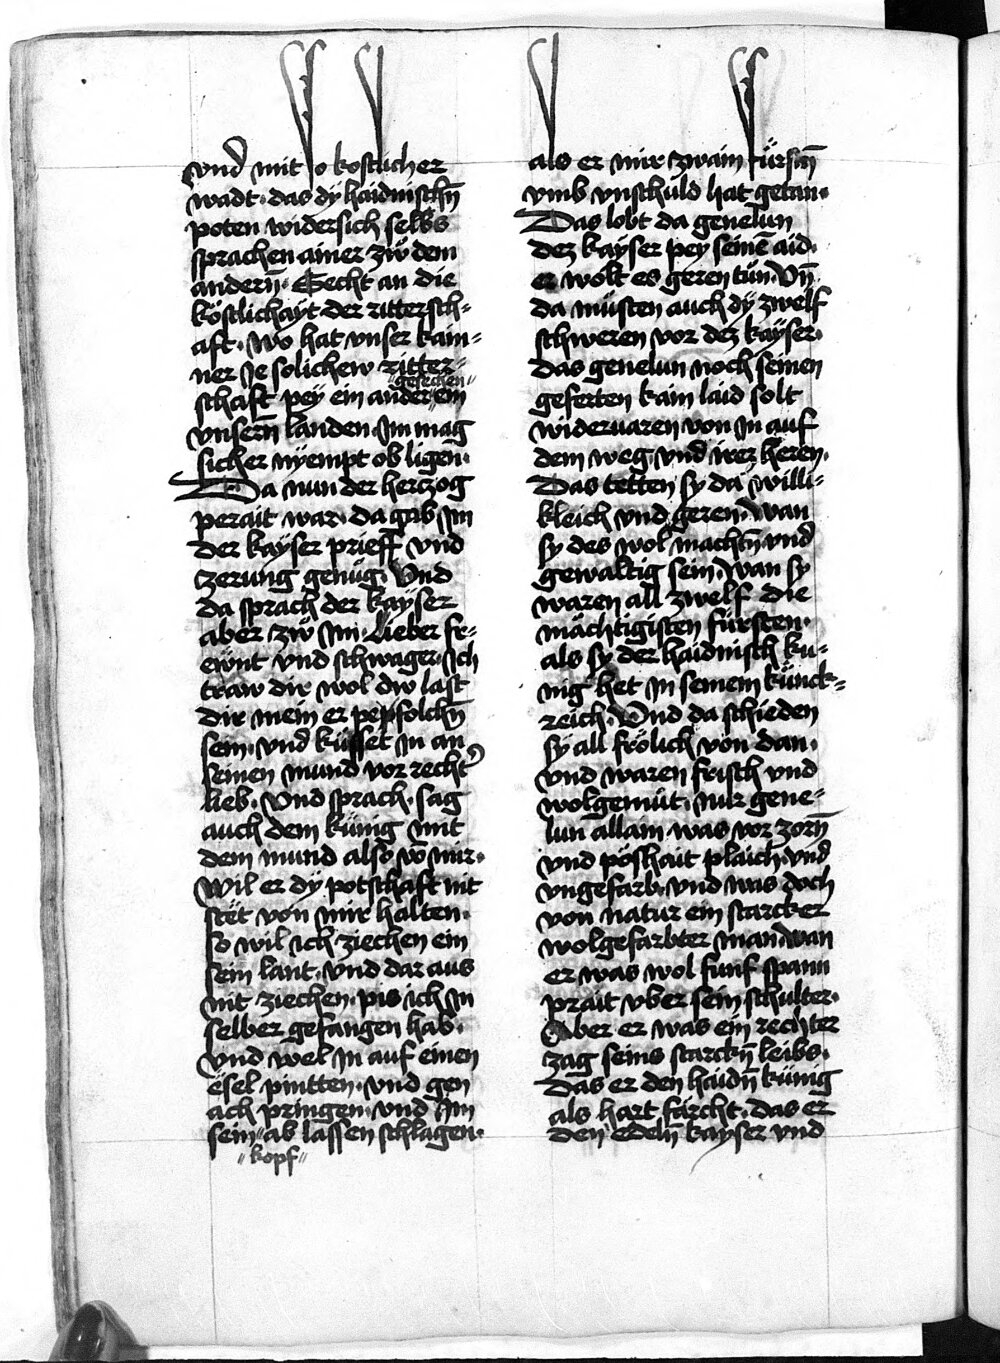 vnd mit so kostlicher
wadt · das dÿ haidnischn̄
poten widersich selbs
sprachen ainer zw̋ dem
andern̄ · Secht an die
köstlichaÿt der rittersch-
aft · wo hat vnser kain-
ner Je solichew ritter-
schaft peÿ ein ander "gesechen" ein
vnsern̄ landen · Im mag
sicher nÿempt ob ligen ·
Da nun der herczog
perait war · da gab Im
der kaÿser prieff vnd
zerung genűg · Vnd
da sprach der kaÿser
aber zw̋ Im · Lieber fr-
ewnt vnd schwager · ich
traw dir wol dw last
dir mein er pepfolchn̄
sein · vnd küsset in an
seinen mund vor rechter
lieb · Vnd sprach · sag
auch dem künig mit
dem mund also vō mir ·
wil er dÿ potschaft nit
stët von mir halten ·
so wil ich ziechen ein
sein lant · vnd dar aus
nit ziechen · pis ich in
selber gefangen hab ·
vnd wel in auf einen
esel pintten · vnd gen
ach pringen · vnd Im
sein " ab lassen schlagen ·
" kopf "
als er mir zwain fürstn̄
vmb vnschuld hat getan ·
Das lobt da genelun
dez kayser pey seinē aid ·
er wolt es geren tűn · Vn̄
da müsten auch dÿ zwelf
schweren vor dez kaÿser ·
das genelun noch seinen
geferten kain laid solt
widervaren von in auf
dem weg · vnd irer heren ·
Das tetten sy da willi-
kleich vnd geren · wan
sy des wol machtn̄ vnd
gewaltig sein · wan sy
waren all zwelf die
mächtigisten fürsten ·
als sy der haidnisch ku-
nig het in seinem künck-
reich · Vnd da schieden
sÿ all frölich von dan ·
vnd waren frisch vnd
wolgemüt · nur gene-
lun allain was vor zorn̄
vnd poshait plaich · vnd
vngefarb · vnd was doch
von natur ein starcker
wolgefarbter man · wan
er was wol funf spann
prait vber sein schulter ·
Aber er was ein rechter
zag seins starckn̄ leibs ·
Das er den haidn̄ künig
als hart fürcht · das er
den edeln̄ kayser vnd